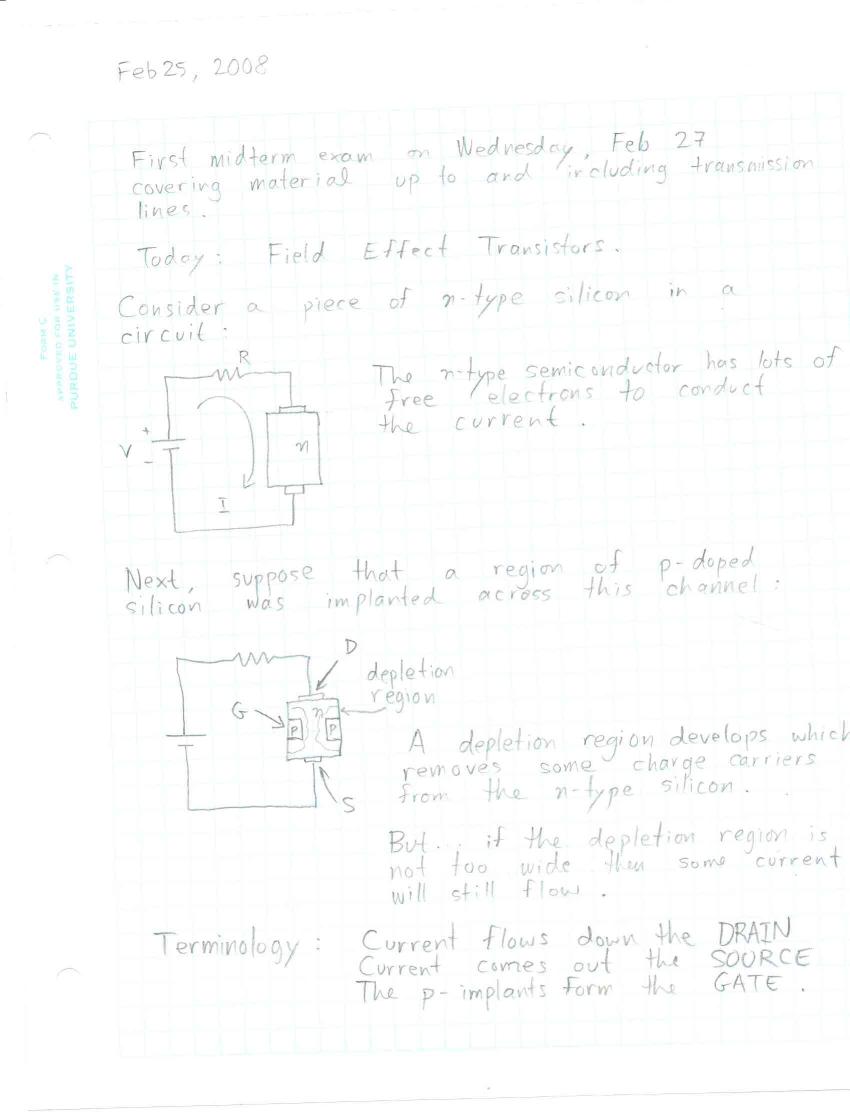 Feb 25, 2008
First midterm exam on Wednesday, Feb 27
covering material up to and including transmission
lines.
Today: Field Effect Transistors.
FORM C
APPROVED FOR USE IN
PURDUE UNIVERSITY
Consider a piece of n-type silicon in a
circuit:
R
V
+
-
I
n
The n-type semiconductor has lots of
free electrons to conduct
the current.
Next, suppose that a region of p-doped
silicon was implanted across this channel:
D
depletion
region
G
n
P
P
S
A depletion region develops which
removes some charge carriers
from the n-type silicon.
But... if the depletion region is
not too wide then some current
will still flow.
Terminology: Current flows down the DRAIN
Current comes out the SOURCE
The p-implants form the GATE.